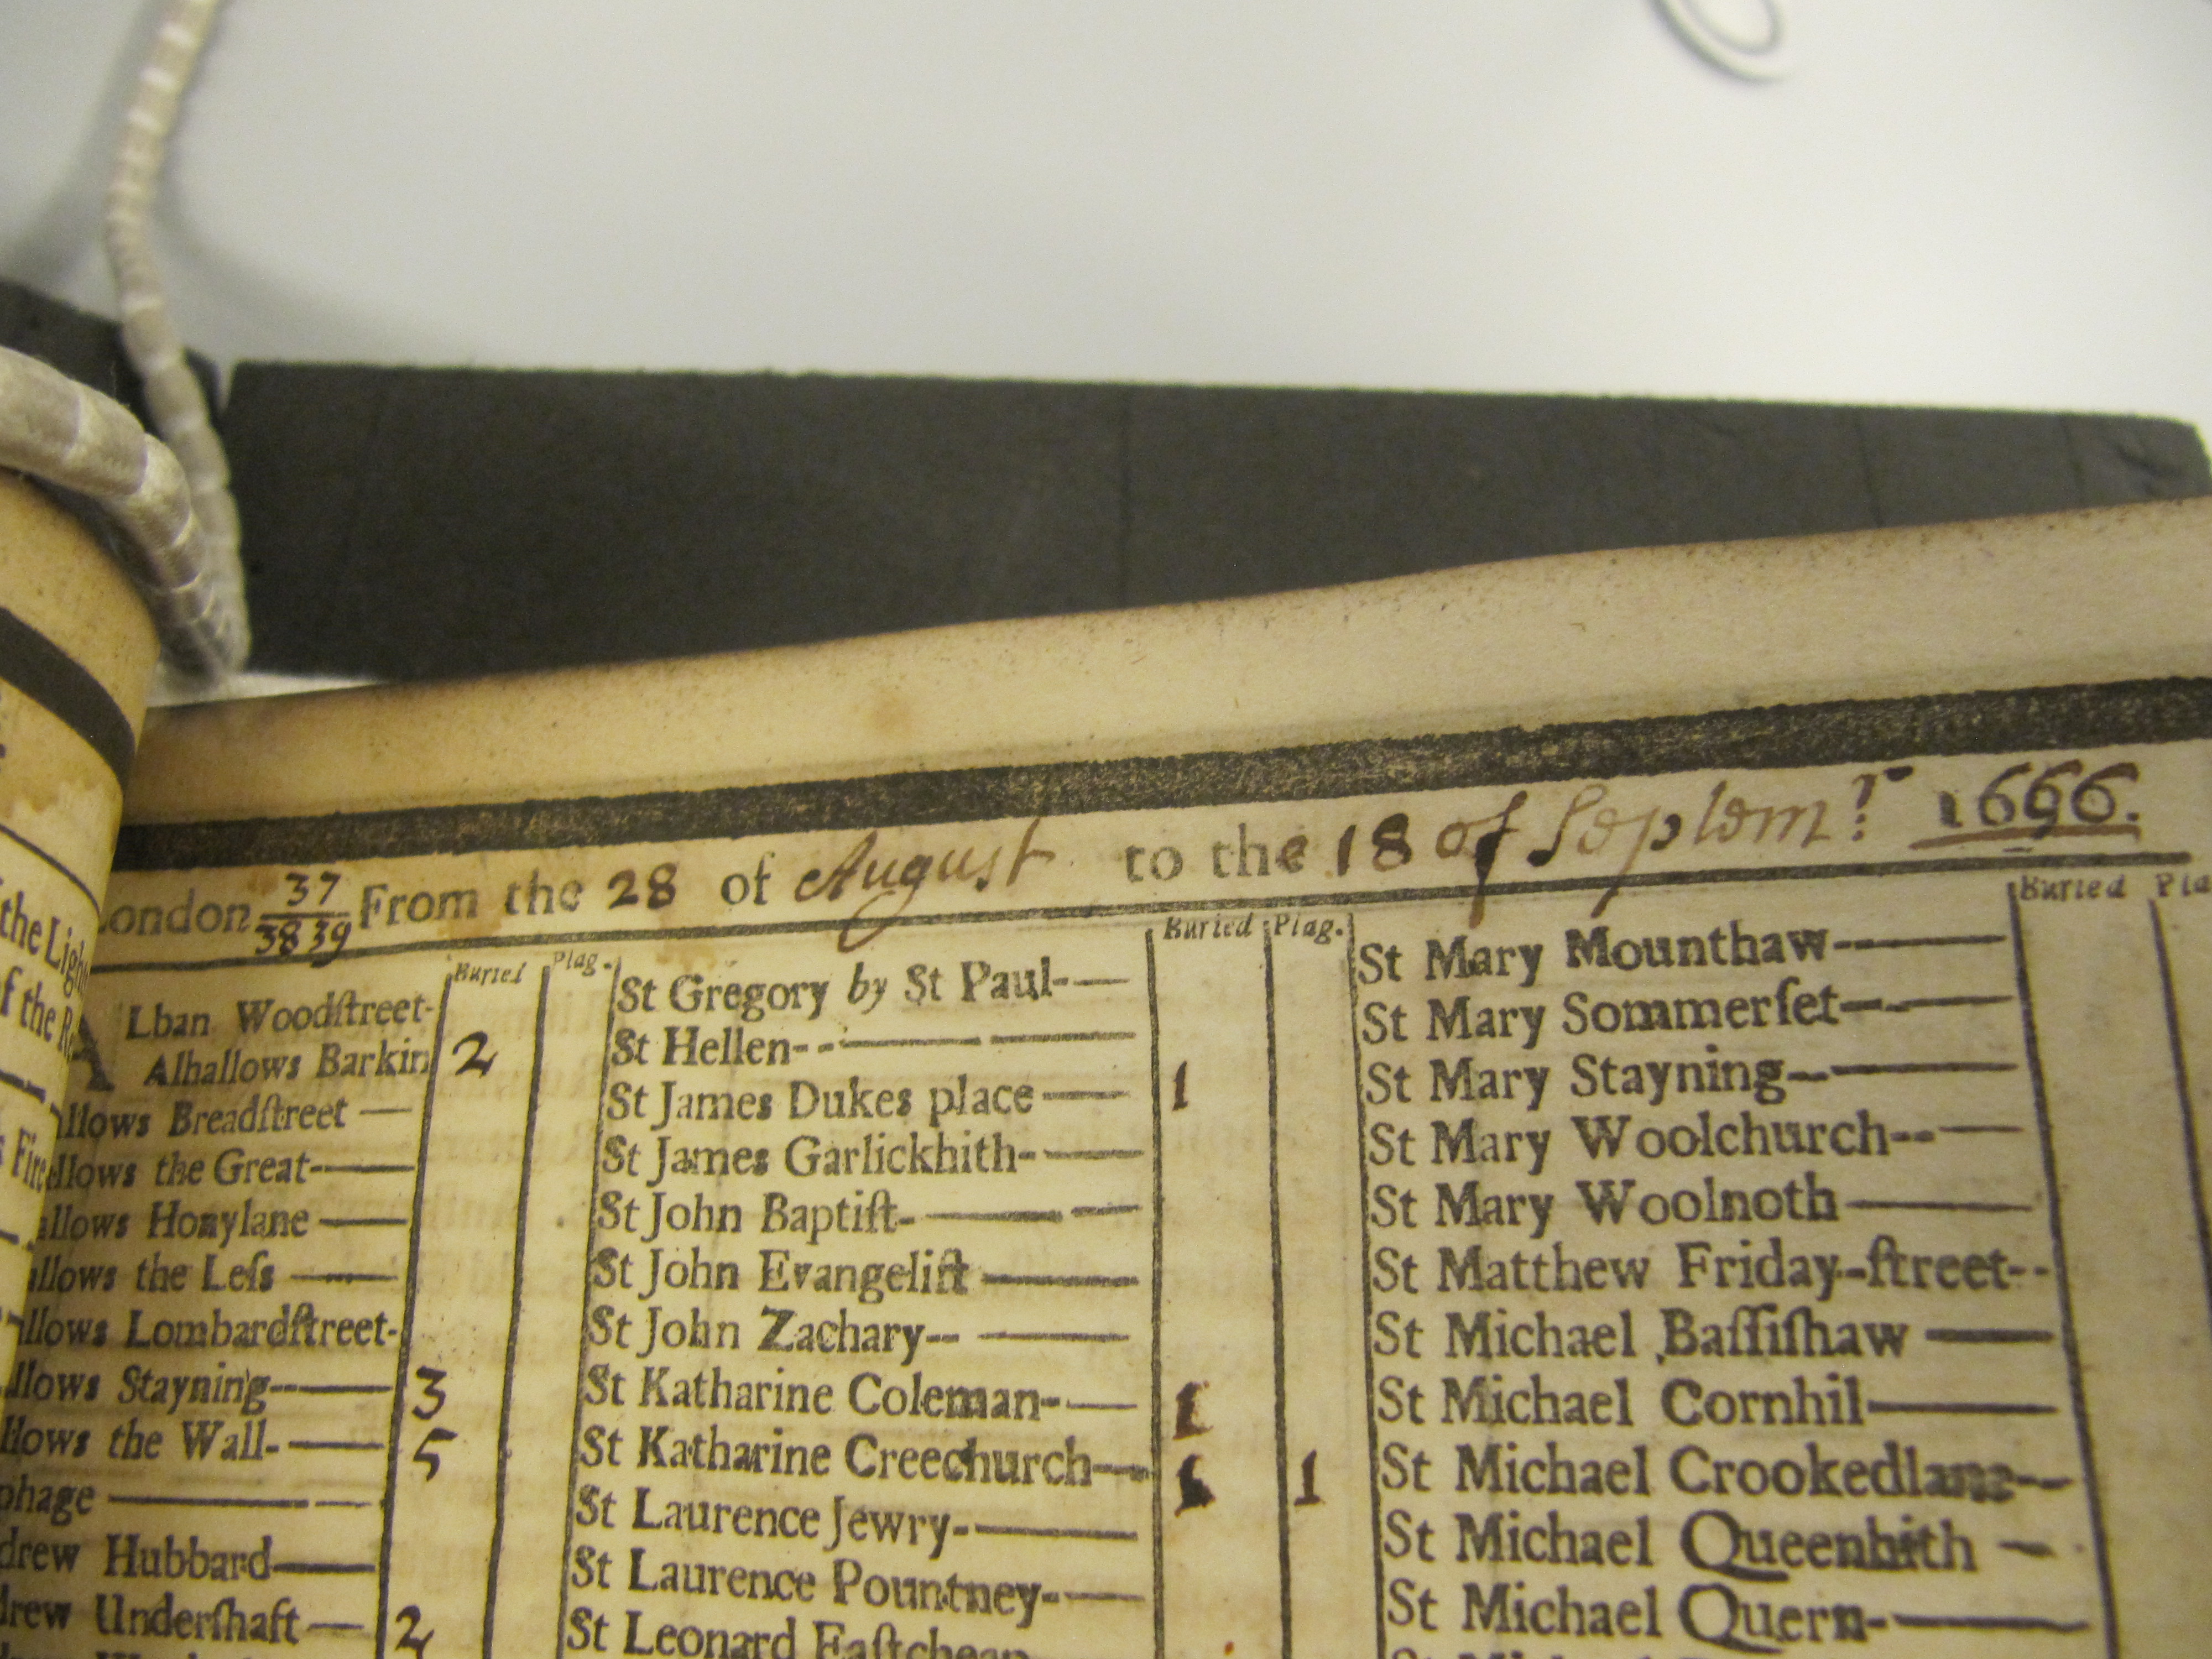 London 37/38 39 From the 28 of August to the 18 of Septemr: 1666.
the Ligh
f the R
Fire
Buried Plag.
A Lban Woodſtreet-
Alhallows Barkin 2
allows Breadſtreet —
allows the Great-—
allows Honylane —
allows the Leſs —
allows Lombardſtreet-
allows Stayning--— 3
allows the Wall-— 5
phage —
drew Hubbard—
drew Underſhaft — 2
Buried Plag.
St Gregory by St Paul-—
St Hellen--—
St James Dukes place — 1
St James Garlickhith-—
St John Baptiſt-—
St John Evangeliſt —
St John Zachary--—
St Katharine Coleman-— 1
St Katharine Creechurch— 1 1
St Laurence Jewry-—
St Laurence Pountney-—
St Leonard Eaſtcheap
Buried Pla
St Mary Mounthaw-—
St Mary Sommerſet-—
St Mary Stayning-—
St Mary Woolchurch--—
St Mary Woolnoth —
St Matthew Friday-ſtreet--
St Michael Baſſiſhaw —
St Michael Cornhil—
St Michael Crookedlane—
St Michael Queenhith —
St Michael Quern-—